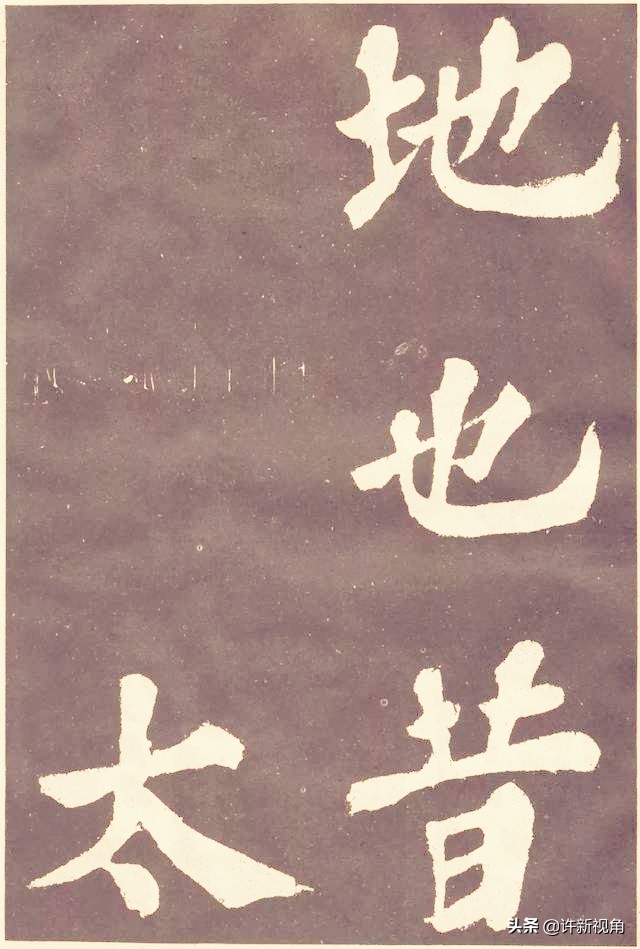 地也昔
太
头条 @许新视角